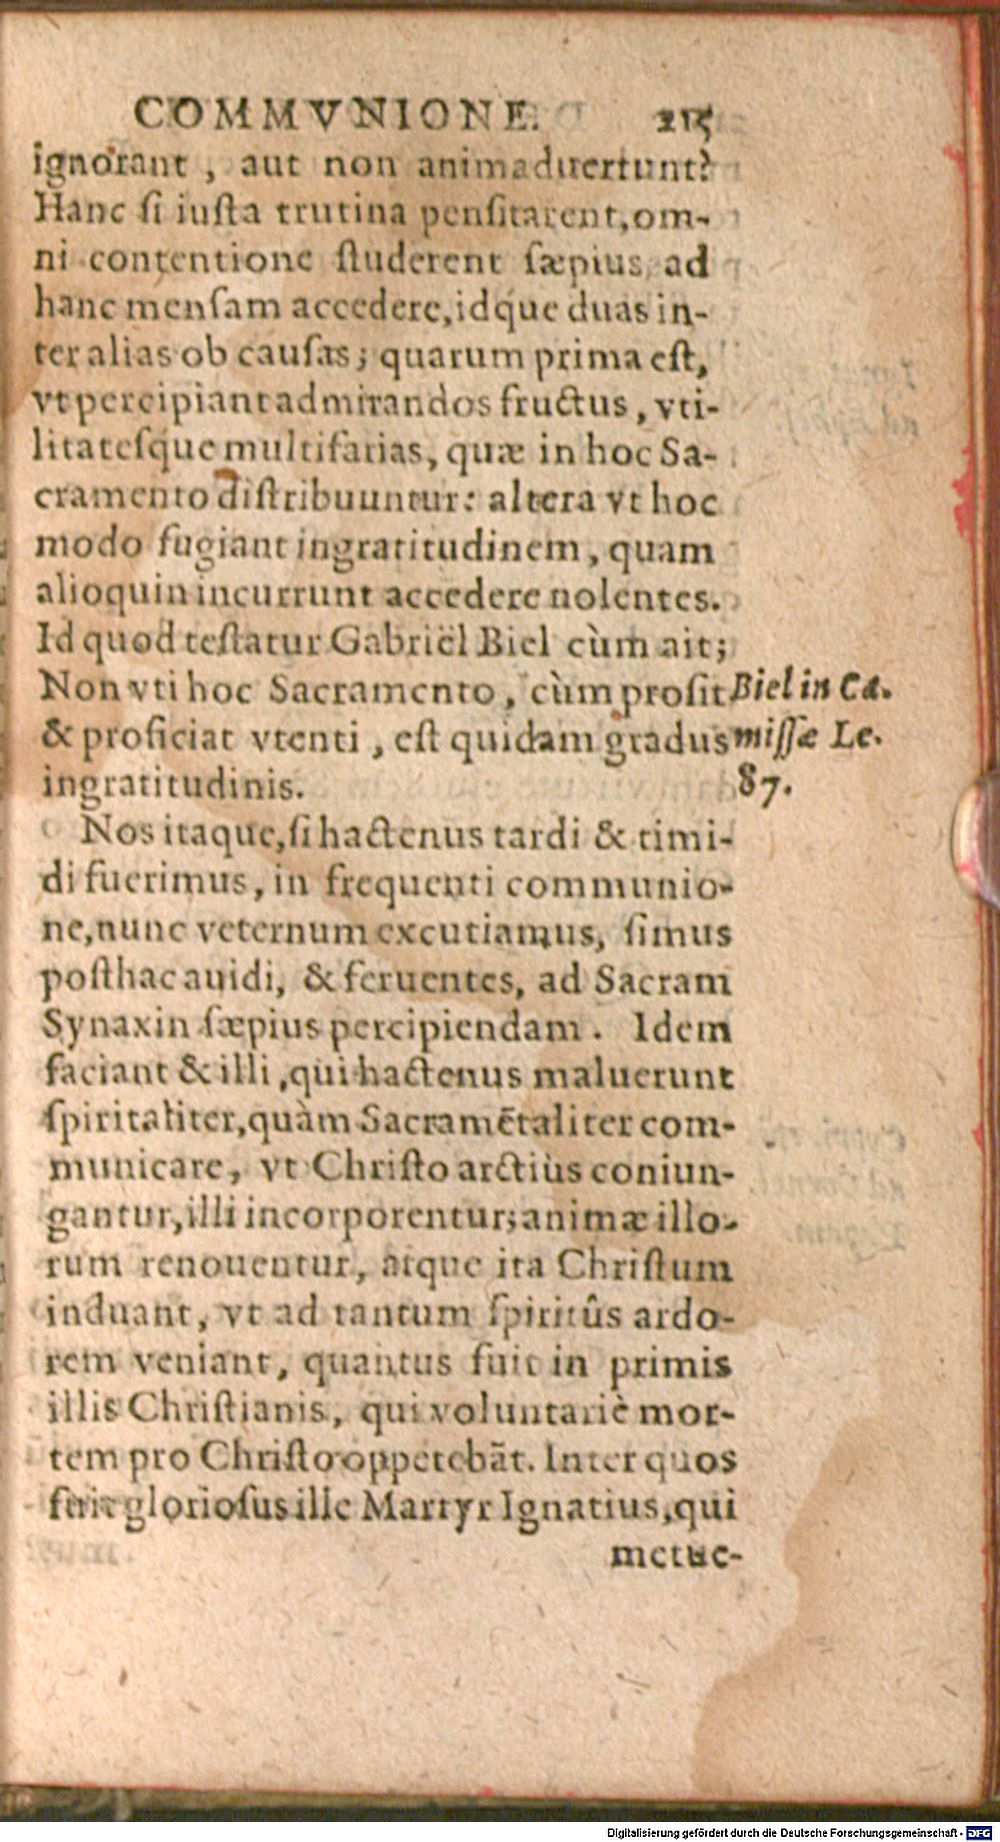 COMMVNIONE. 215
ignorant, aut non animaduertunt?
Hanc ſi iuſta trutina penſitarent, om-
ni contentione ſtuderent ſæpius, ad
hanc menſam accedere, idq́ue duas in-
ter alias ob cauſas; quarum prima eſt,
vt percipiant admirandos fructus, vti-
litateſq́ue multifarias, quæ in hoc Sa-
cramento diſtribuuntur: altera vt hoc
modo fugiant ingratitudinem, quam
alioquin incurrunt accedere nolentes.
Id quod teſtatur Gabriël Biel cùm ait;
Non vti hoc Sacramento, cùm proſit
& proficiat vtenti, eſt quidam gradus
ingratitudinis.
Biel in Ca.
miſſæ Le.
87.
Nos itaque, ſi hactenus tardi & timi-
di fuerimus, in frequenti communio-
ne, nunc veternum excutiamus, ſimus
poſthac auidi, & feruentes, ad Sacram
Synaxin ſæpius percipiendam. Idem
faciant & illi, qui hactenus maluerunt
ſpiritaliter, quàm Sacramẽtaliter com-
municare, vt Chriſto arctiùs coniun-
gantur, illi incorporentur; animæ illo-
rum renouentur, atque ita Chriſtum
induant, vt ad tantum ſpiritûs ardo-
rem veniant, quantus fuit in primis
illis Chriſtianis, qui voluntariè mor-
tem pro Chriſto oppetebãt. Inter quos
fuit glorioſus ille Martyr Ignatius, qui
metue-
Digitalisierung gefördert durch die Deutsche Forschungsgemeinschaft - DFG